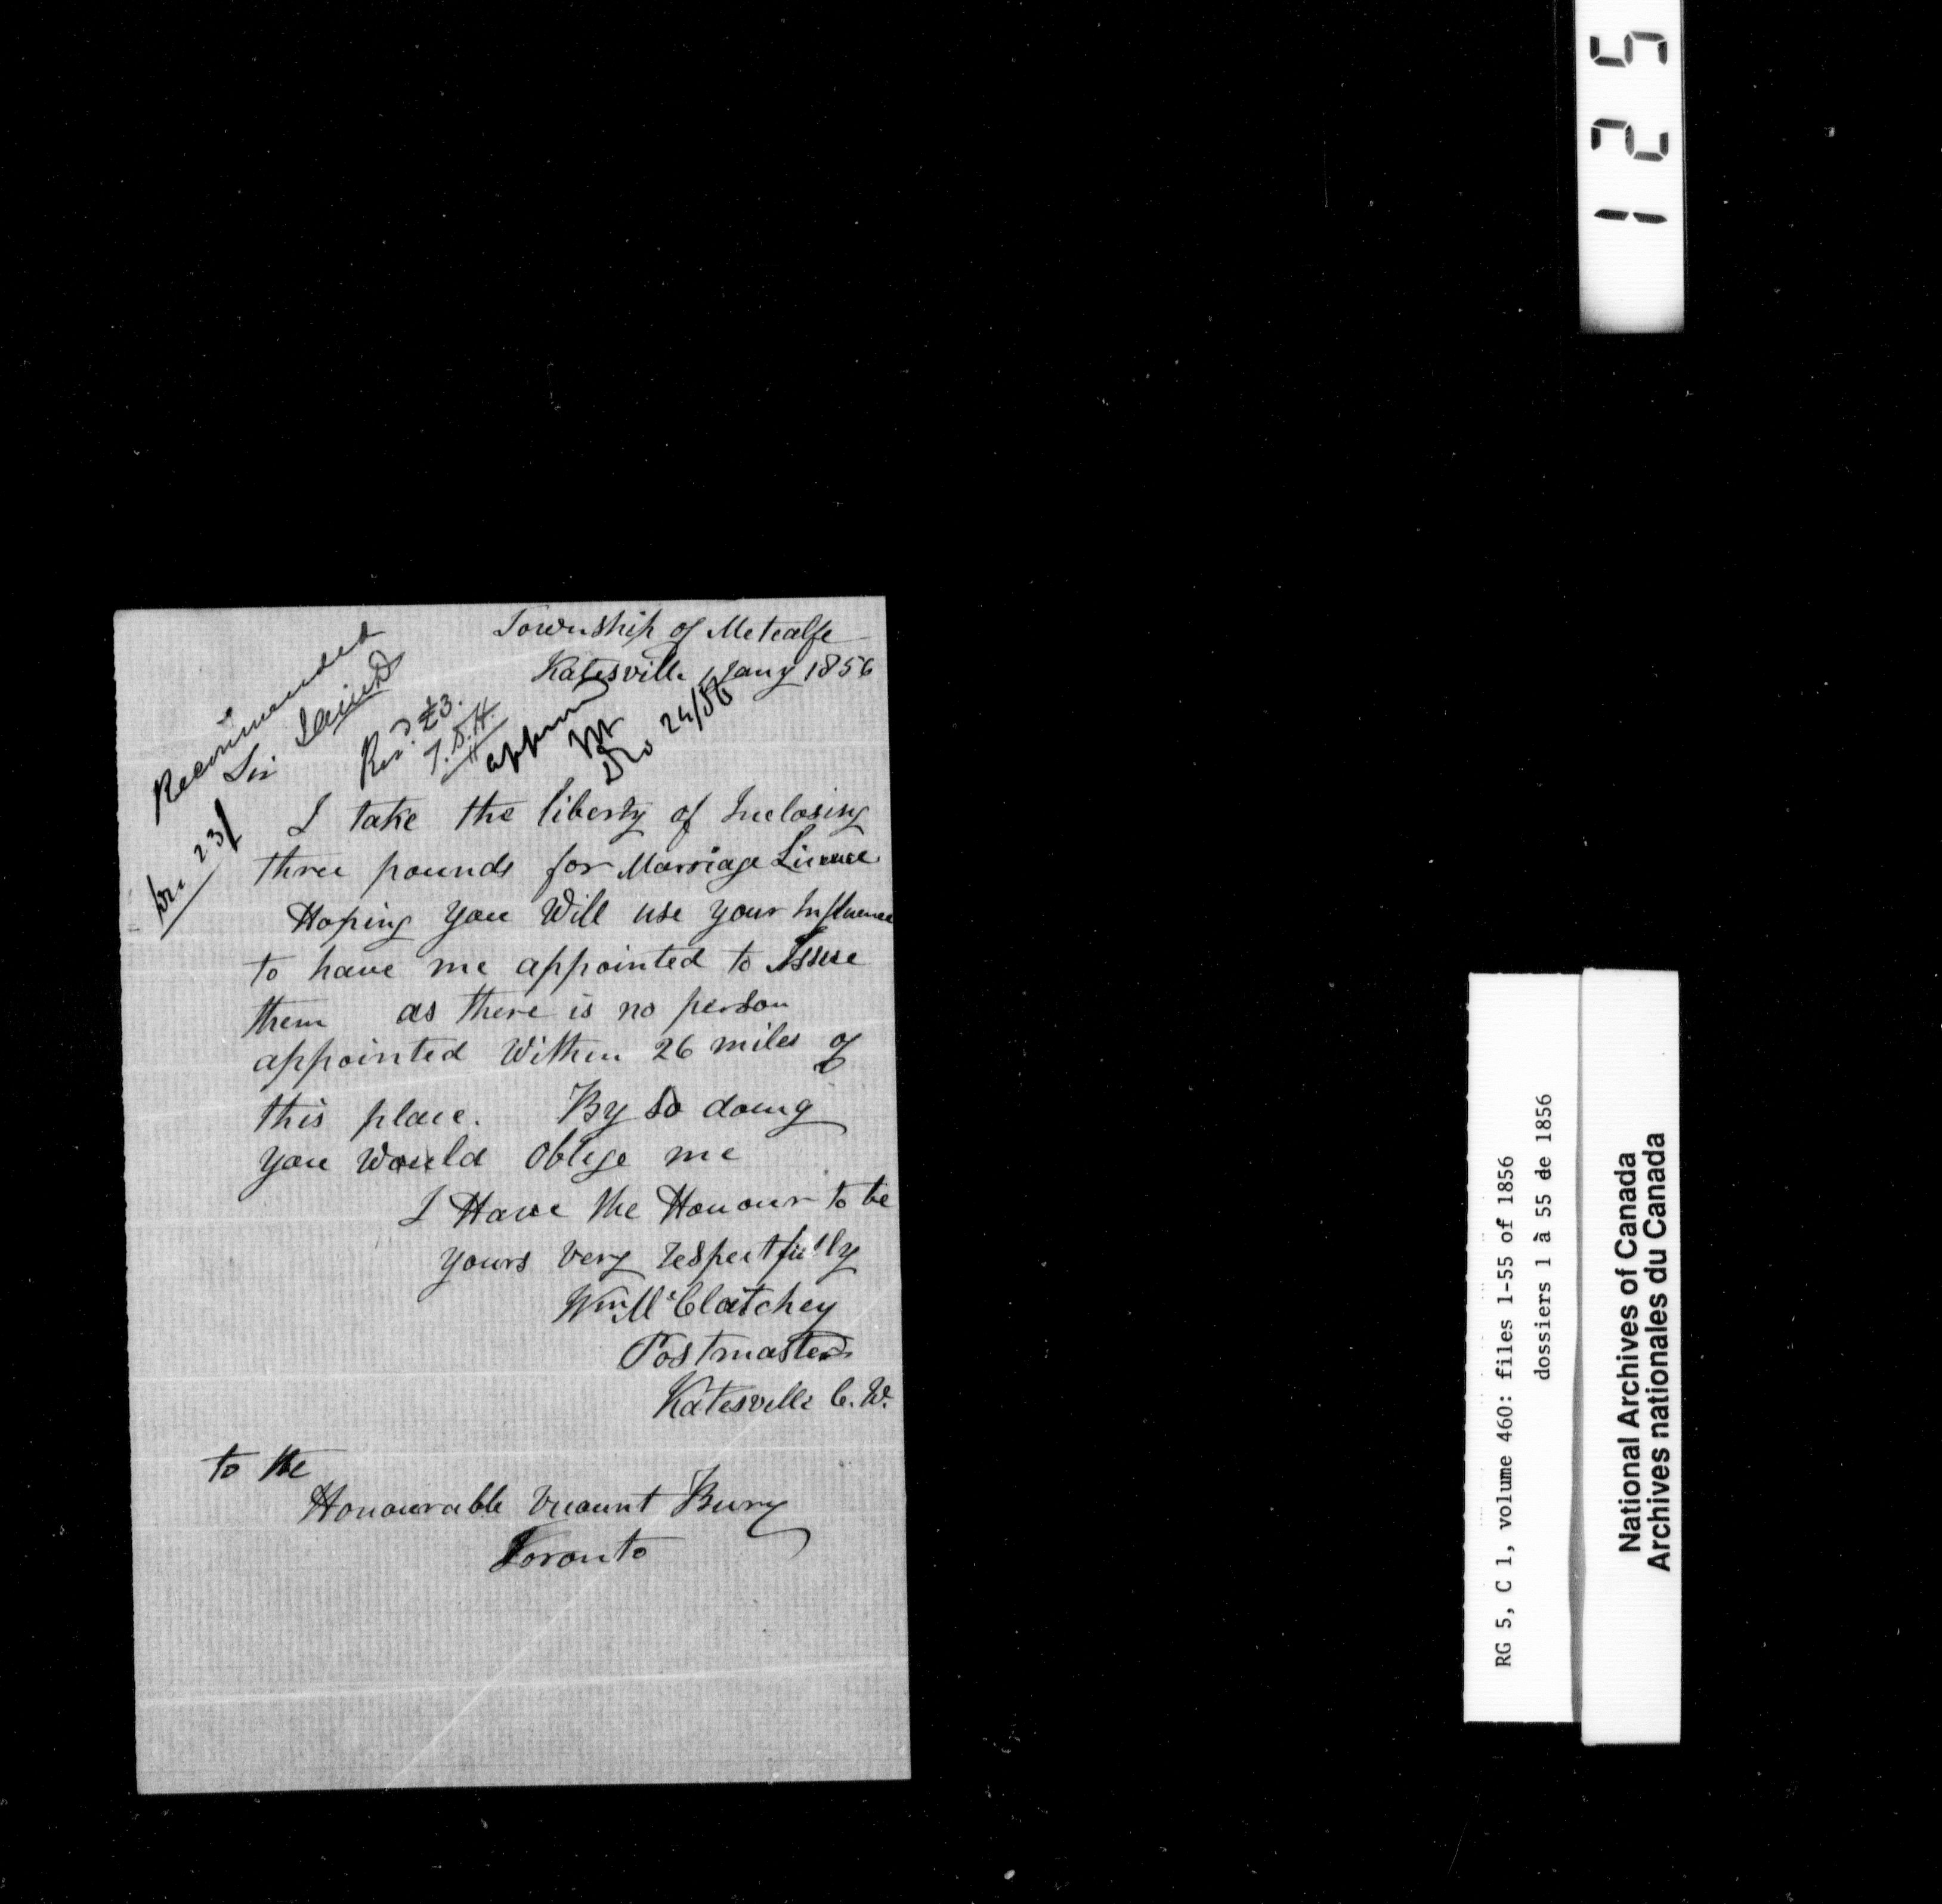 Township of Metcalfe
Katesville 1 Jany 1856
Recommended
Recd. £3.
T.D.H.
24/56
23/
Sir
I take the liberty of Inclosing
three pounds for Marriage Licence
Hoping you Will use your Influence
to have me appointed to Issue
them as there is no person
appointed Within 26 miles of
this place. By so doing
you Would Oblige me
I Have the Honour to be
yours very respectfully
Wm McClatchey
Postmaster
Katesville C.W.
to the
Honourable Vicount Bury
Toronto
125
RG 5, C 1, volume 460: files 1-55 of 1856
dossiers 1 à 55 de 1856
National Archives of Canada
Archives nationales du Canada